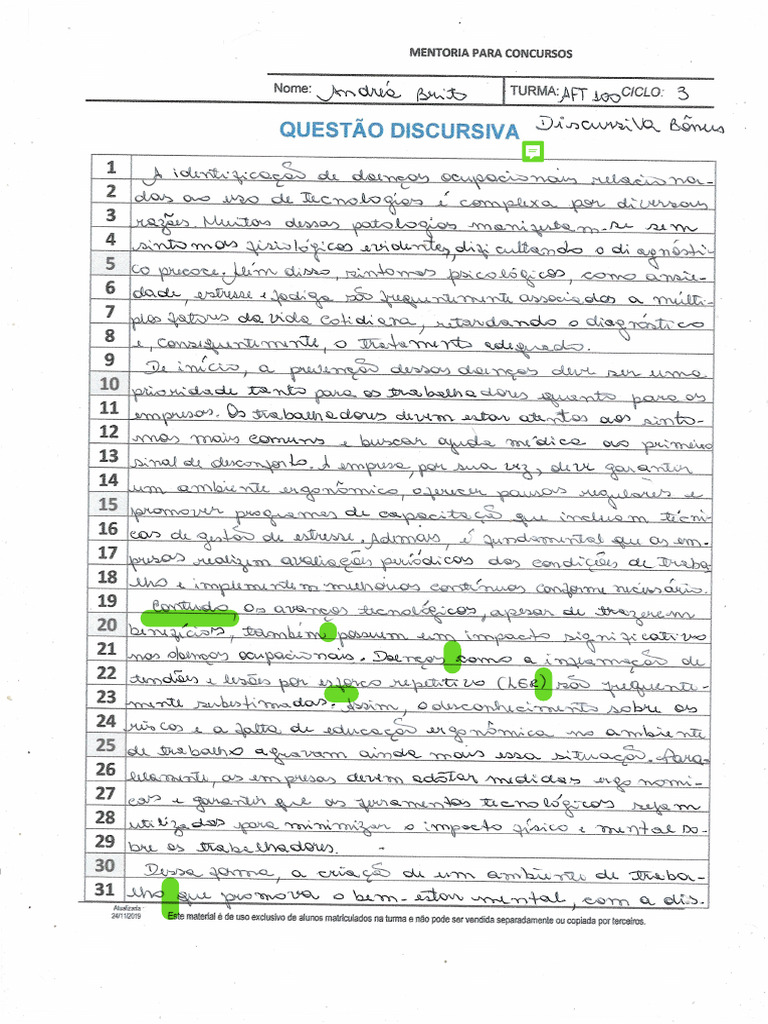 MENTORIA PARA CONCURSOS
Nome: Andréa Brito TURMA: AFT 100 CICLO: 3
QUESTÃO DISCURSIVA Discursiva Bônus
1 A identificação de doenças ocupacionais relaciona-
2 das ao uso de tecnologias é complexa por diversas
3 razões. Muitas dessas patologias manifestam-se sem
4 sintomas fisiológicos evidentes, dificultando o diagnósti-
5 co precoce. Além disso, sintomas psicológicos, como ansie-
6 dade, estresse e fadiga são frequentemente associados a múlti-
7 plos fatores da vida cotidiana, retardando o diagnóstico
8 e, consequentemente, o tratamento adequado.
9 De início, a prevenção dessas doenças deve ser uma
10 prioridade tanto para os trabalhadores quanto para as
11 empresas. Os trabalhadores devem estar atentos aos sinto-
12 mas mais comuns e buscar ajuda médica ao primeiro
13 sinal de desconforto. A empresa, por sua vez, deve garantir
14 um ambiente ergonômico, oferecer pausas regulares e
15 promover programas de capacitação que incluam técni-
16 cas de gestão de estresse. Ademais, é fundamental que as em-
17 presas realizem avaliações periódicas das condições de traba-
18 lho e implementem melhorias contínuas conforme necessário.
19 Contudo, os avanços tecnológicos, apesar de trazerem
20 benefícios, também possuem um impacto significativo
21 nas doenças ocupacionais. Doenças como a inflamação de
22 tendões e lesões por esforco repetitivo (LER) são frequente-
23 mente subestimadas. Assim, o desconhecimento sobre os
24 riscos e a falta de educação ergonômica no ambiente
25 de trabalho agravam ainda mais essa situação. Para-
26 lelamente, as empresas devem adotar medidas ergonomi-
27 cas e garantir que as ferramentas tecnológicas sejam
28 utilizadas para minimizar o impacto físico e mental so-
29 bre os trabalhadores.
30 Dessa forma, a criação de um ambiente de traba-
31 lho que promova o bem-estar mental, com a dis-
Atualizada :
24/11/2019 Este material é de uso exclusivo de alunos matriculados na turma e não pode ser vendida separadamente ou copiada por terceiros.